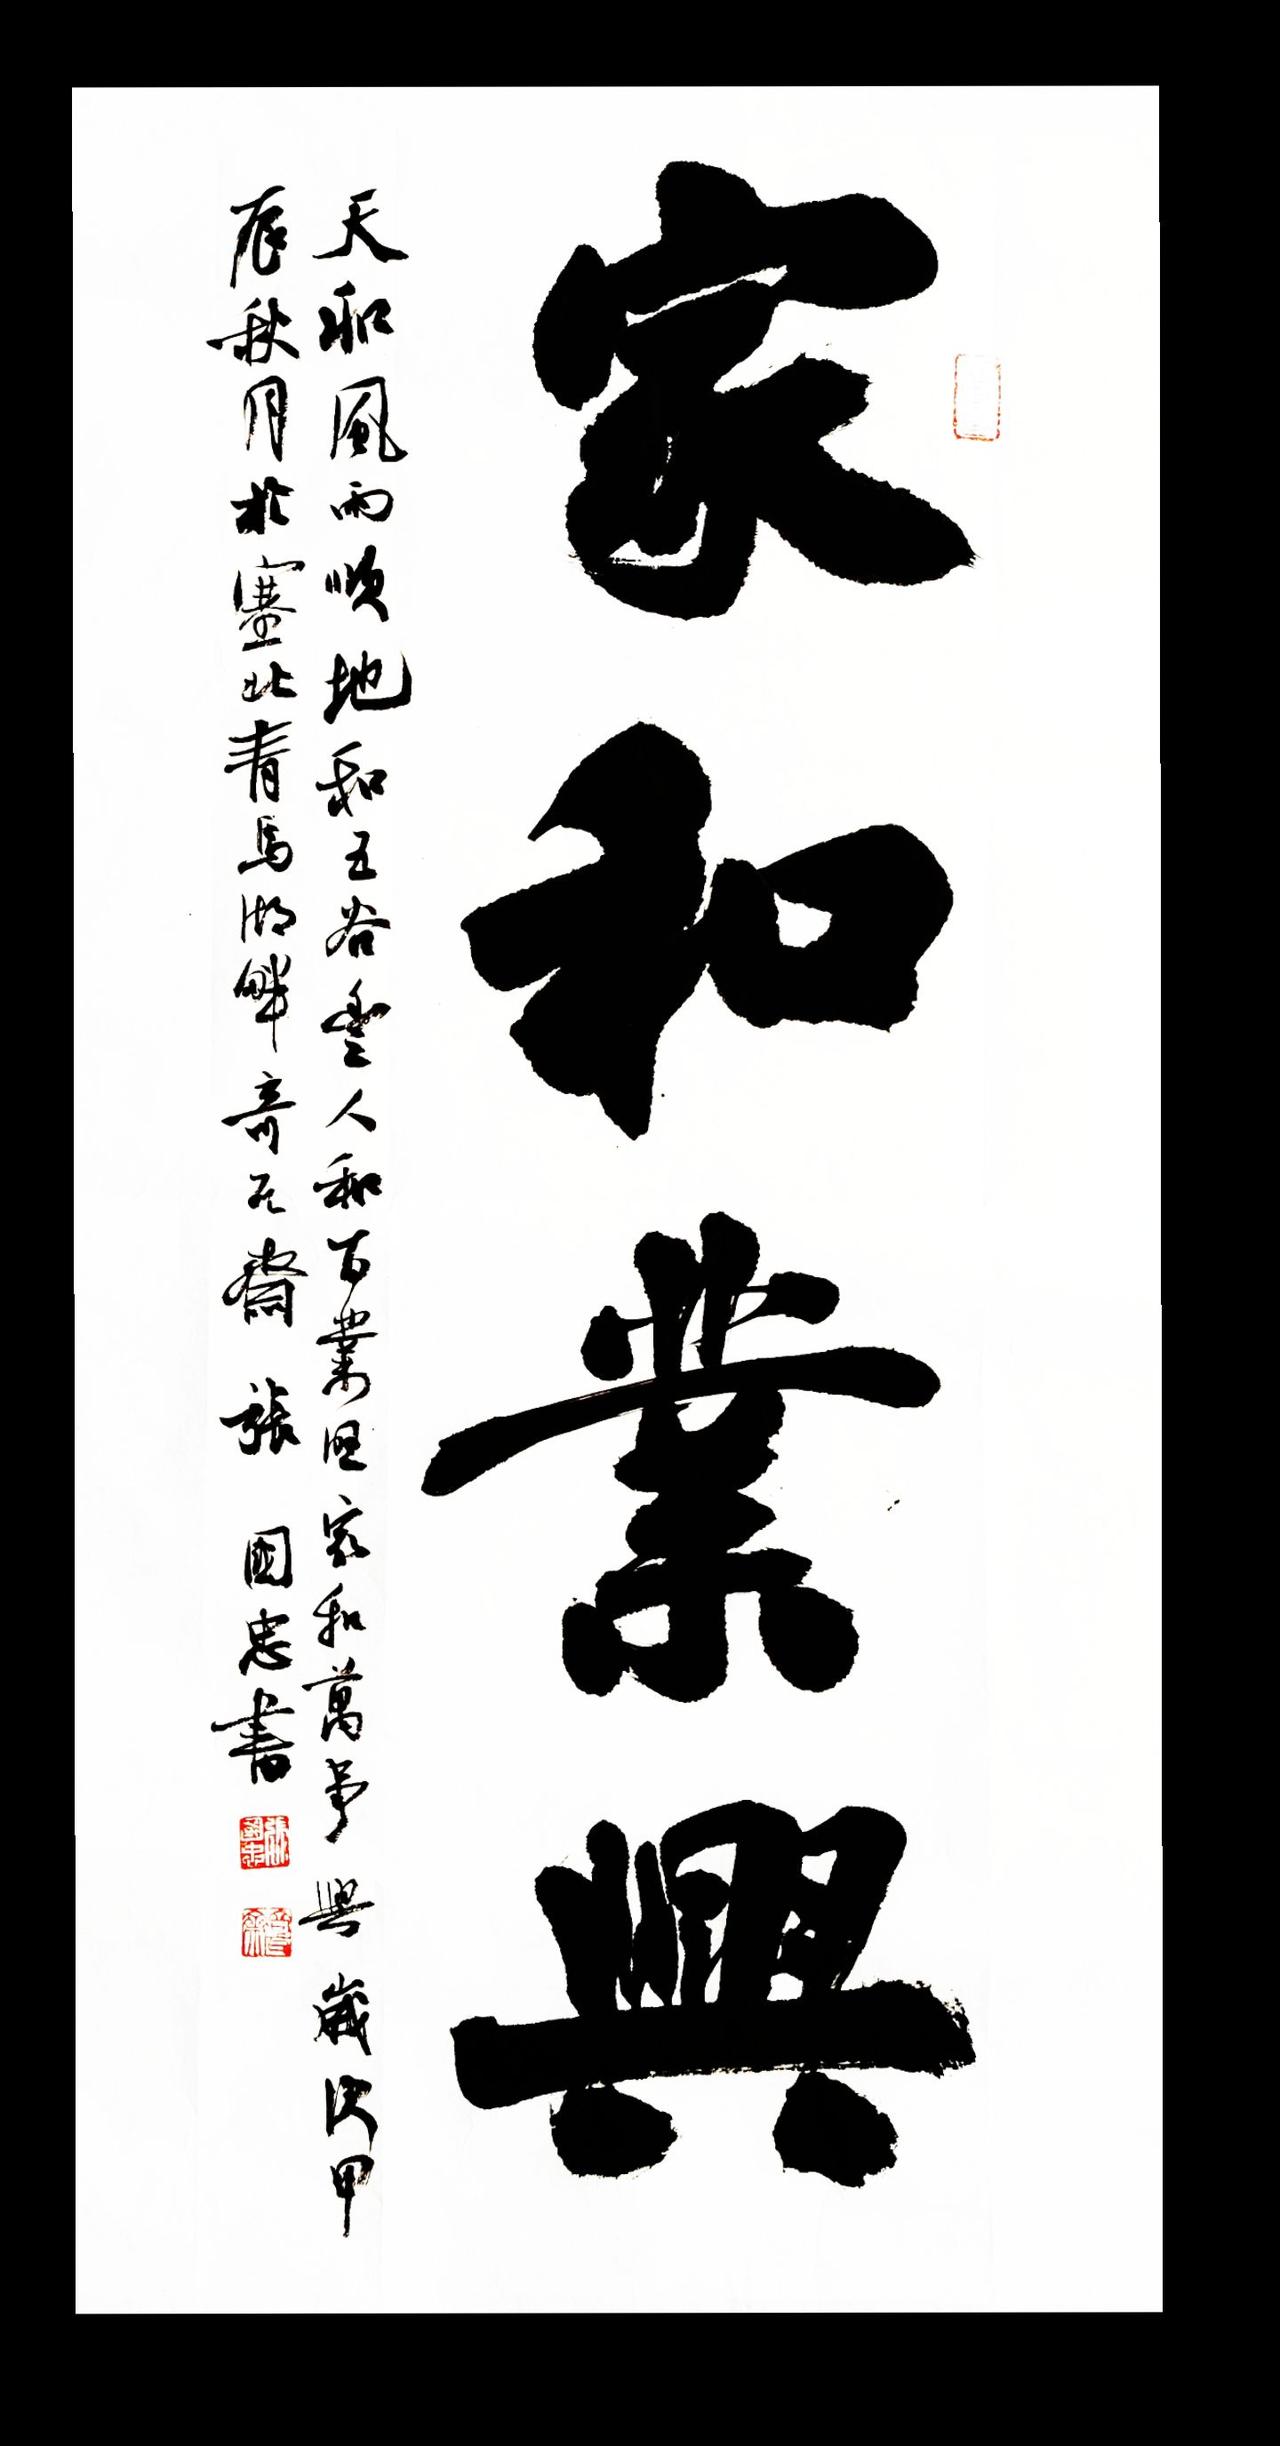 家和業興
天和風雨順地和五谷豐人和百業旺家和萬事興歲次甲
辰秋月於塞北青馬湖畔奇石齋 張國忠書
張國忠